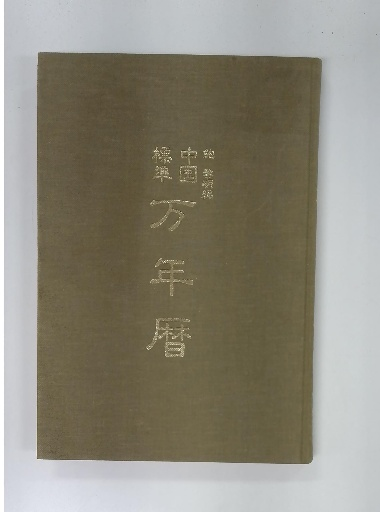 鮑 黎明編
中国
標準
万年暦